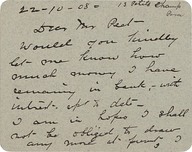 22-10-05- 13 State Champ
Dear Mr Peet-
Would you kindly
let me know how
much money I have
remaining in bank - with
intrest - up to date -
I am in hopes I shall
not be obliged to draw
any more at present, I